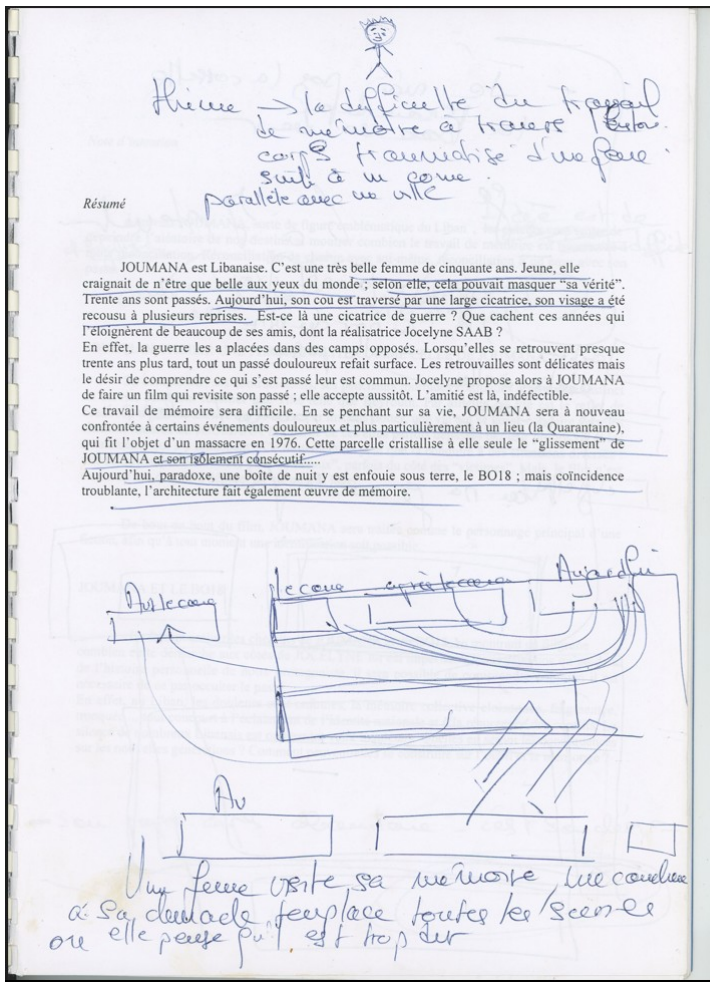 thème → la difficulté du travail
de mémoire à travers
corps traumatisé d'une femme
suite à un coma.
parallèle avec une ville
Résumé
JOUMANA est Libanaise. C'est une très belle femme de cinquante ans. Jeune, elle
craignait de n'être que belle aux yeux du monde ; selon elle, cela pouvait masquer “sa vérité”.
Trente ans sont passés. Aujourd'hui, son cou est traversé par une large cicatrice, son visage a été
recousu à plusieurs reprises. Est-ce là une cicatrice de guerre ? Que cachent ces années qui
l'éloignèrent de beaucoup de ses amis, dont la réalisatrice Jocelyne SAAB ?
En effet, la guerre les a placées dans des camps opposés. Lorsqu'elles se retrouvent presque
trente ans plus tard, tout un passé douloureux refait surface. Les retrouvailles sont délicates mais
le désir de comprendre ce qui s'est passé leur est commun. Jocelyne propose alors à JOUMANA
de faire un film qui revisite son passé ; elle accepte aussitôt. L'amitié est là, indéfectible.
Ce travail de mémoire sera difficile. En se penchant sur sa vie, JOUMANA sera à nouveau
confrontée à certains événements douloureux et plus particulièrement à un lieu (la Quarantaine),
qui fit l'objet d'un massacre en 1976. Cette parcelle cristallise à elle seule le “glissement” de
JOUMANA et son isolement consécutif.....
Aujourd'hui, paradoxe, une boîte de nuit y est enfouie sous terre, le BO18 ; mais coïncidence
troublante, l'architecture fait également œuvre de mémoire.
Avt le coma
le coma après le coma Aujourd'hui
Av
Une femme visite sa mémoire, une
à sa demande remplace toutes les scènes
ou elle pense qu'il est trop dur